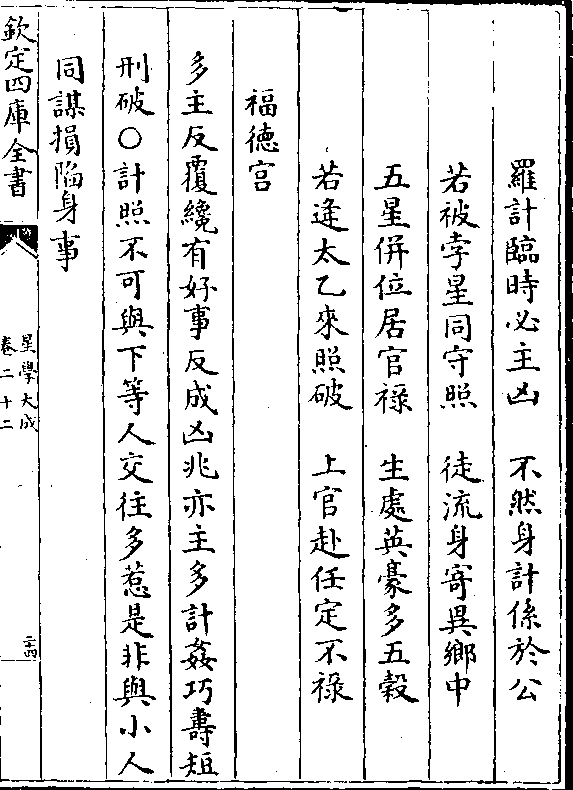 羅計臨時必主凶　不然身計係於公
若被孛星同守照　徒流身寄異鄉中
五星併位居官祿　生處英豪多五穀
若逢太乙來照破　上官赴任定不祿
福徳宫
多主反覆纔有好事反成凶兆亦主多計姦巧壽短
刑破○計照不可與下等人交往多惹是非與小人
同謀損陥身事
欽定四庫全書
星學大成
卷二十二